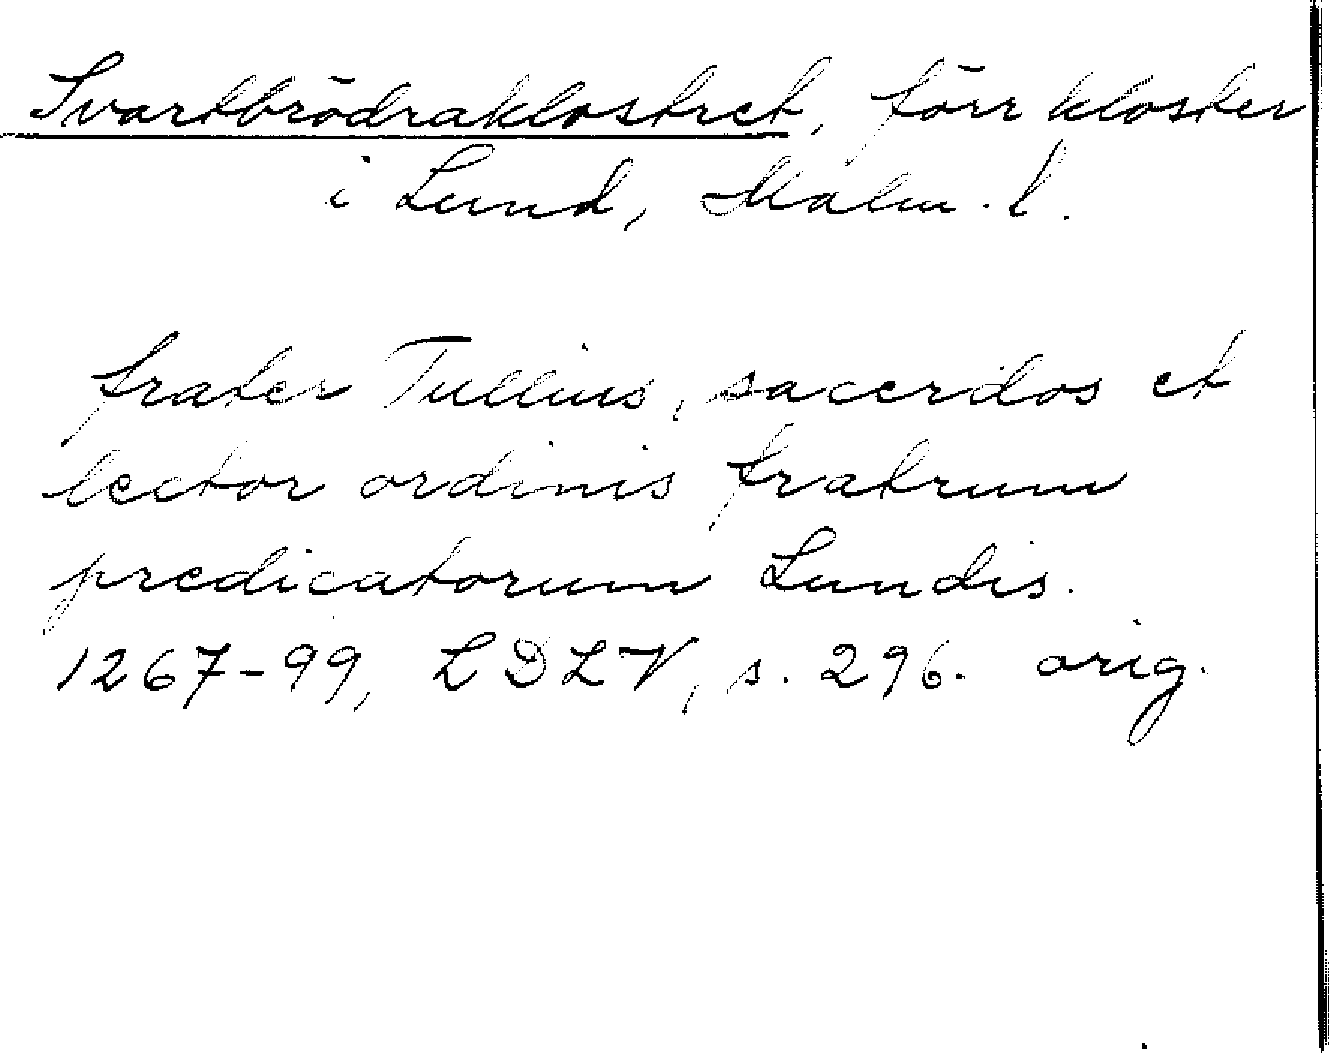 Svartbrödraklostret, förr kloster
i Lund, Malm. l.
frater Tullius, sacerdos et
lector ordinis fratrum
predicatorum Lundis.
1267-99, LDLV, s. 296. orig.